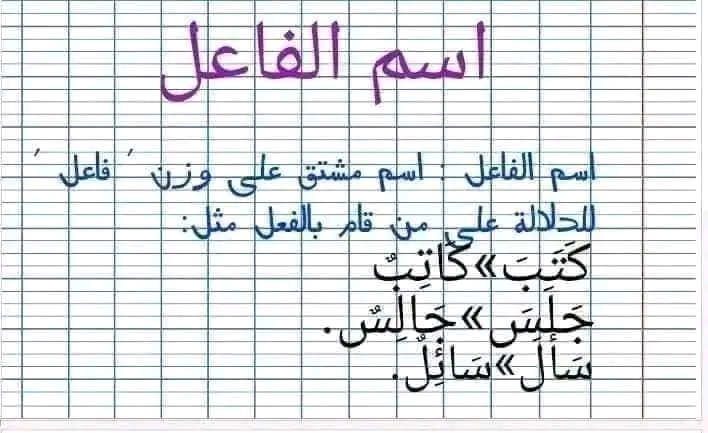 اسم الفاعل
اسم الفاعل : اسم مشتق على وزن " فاعل "
للدلالة على من قام بالفعل مثل:
كَتَبَ»كَاتِبٌ
جَلَسَ»جَالِسٌ.
سَألَ»سَائِلٌ.